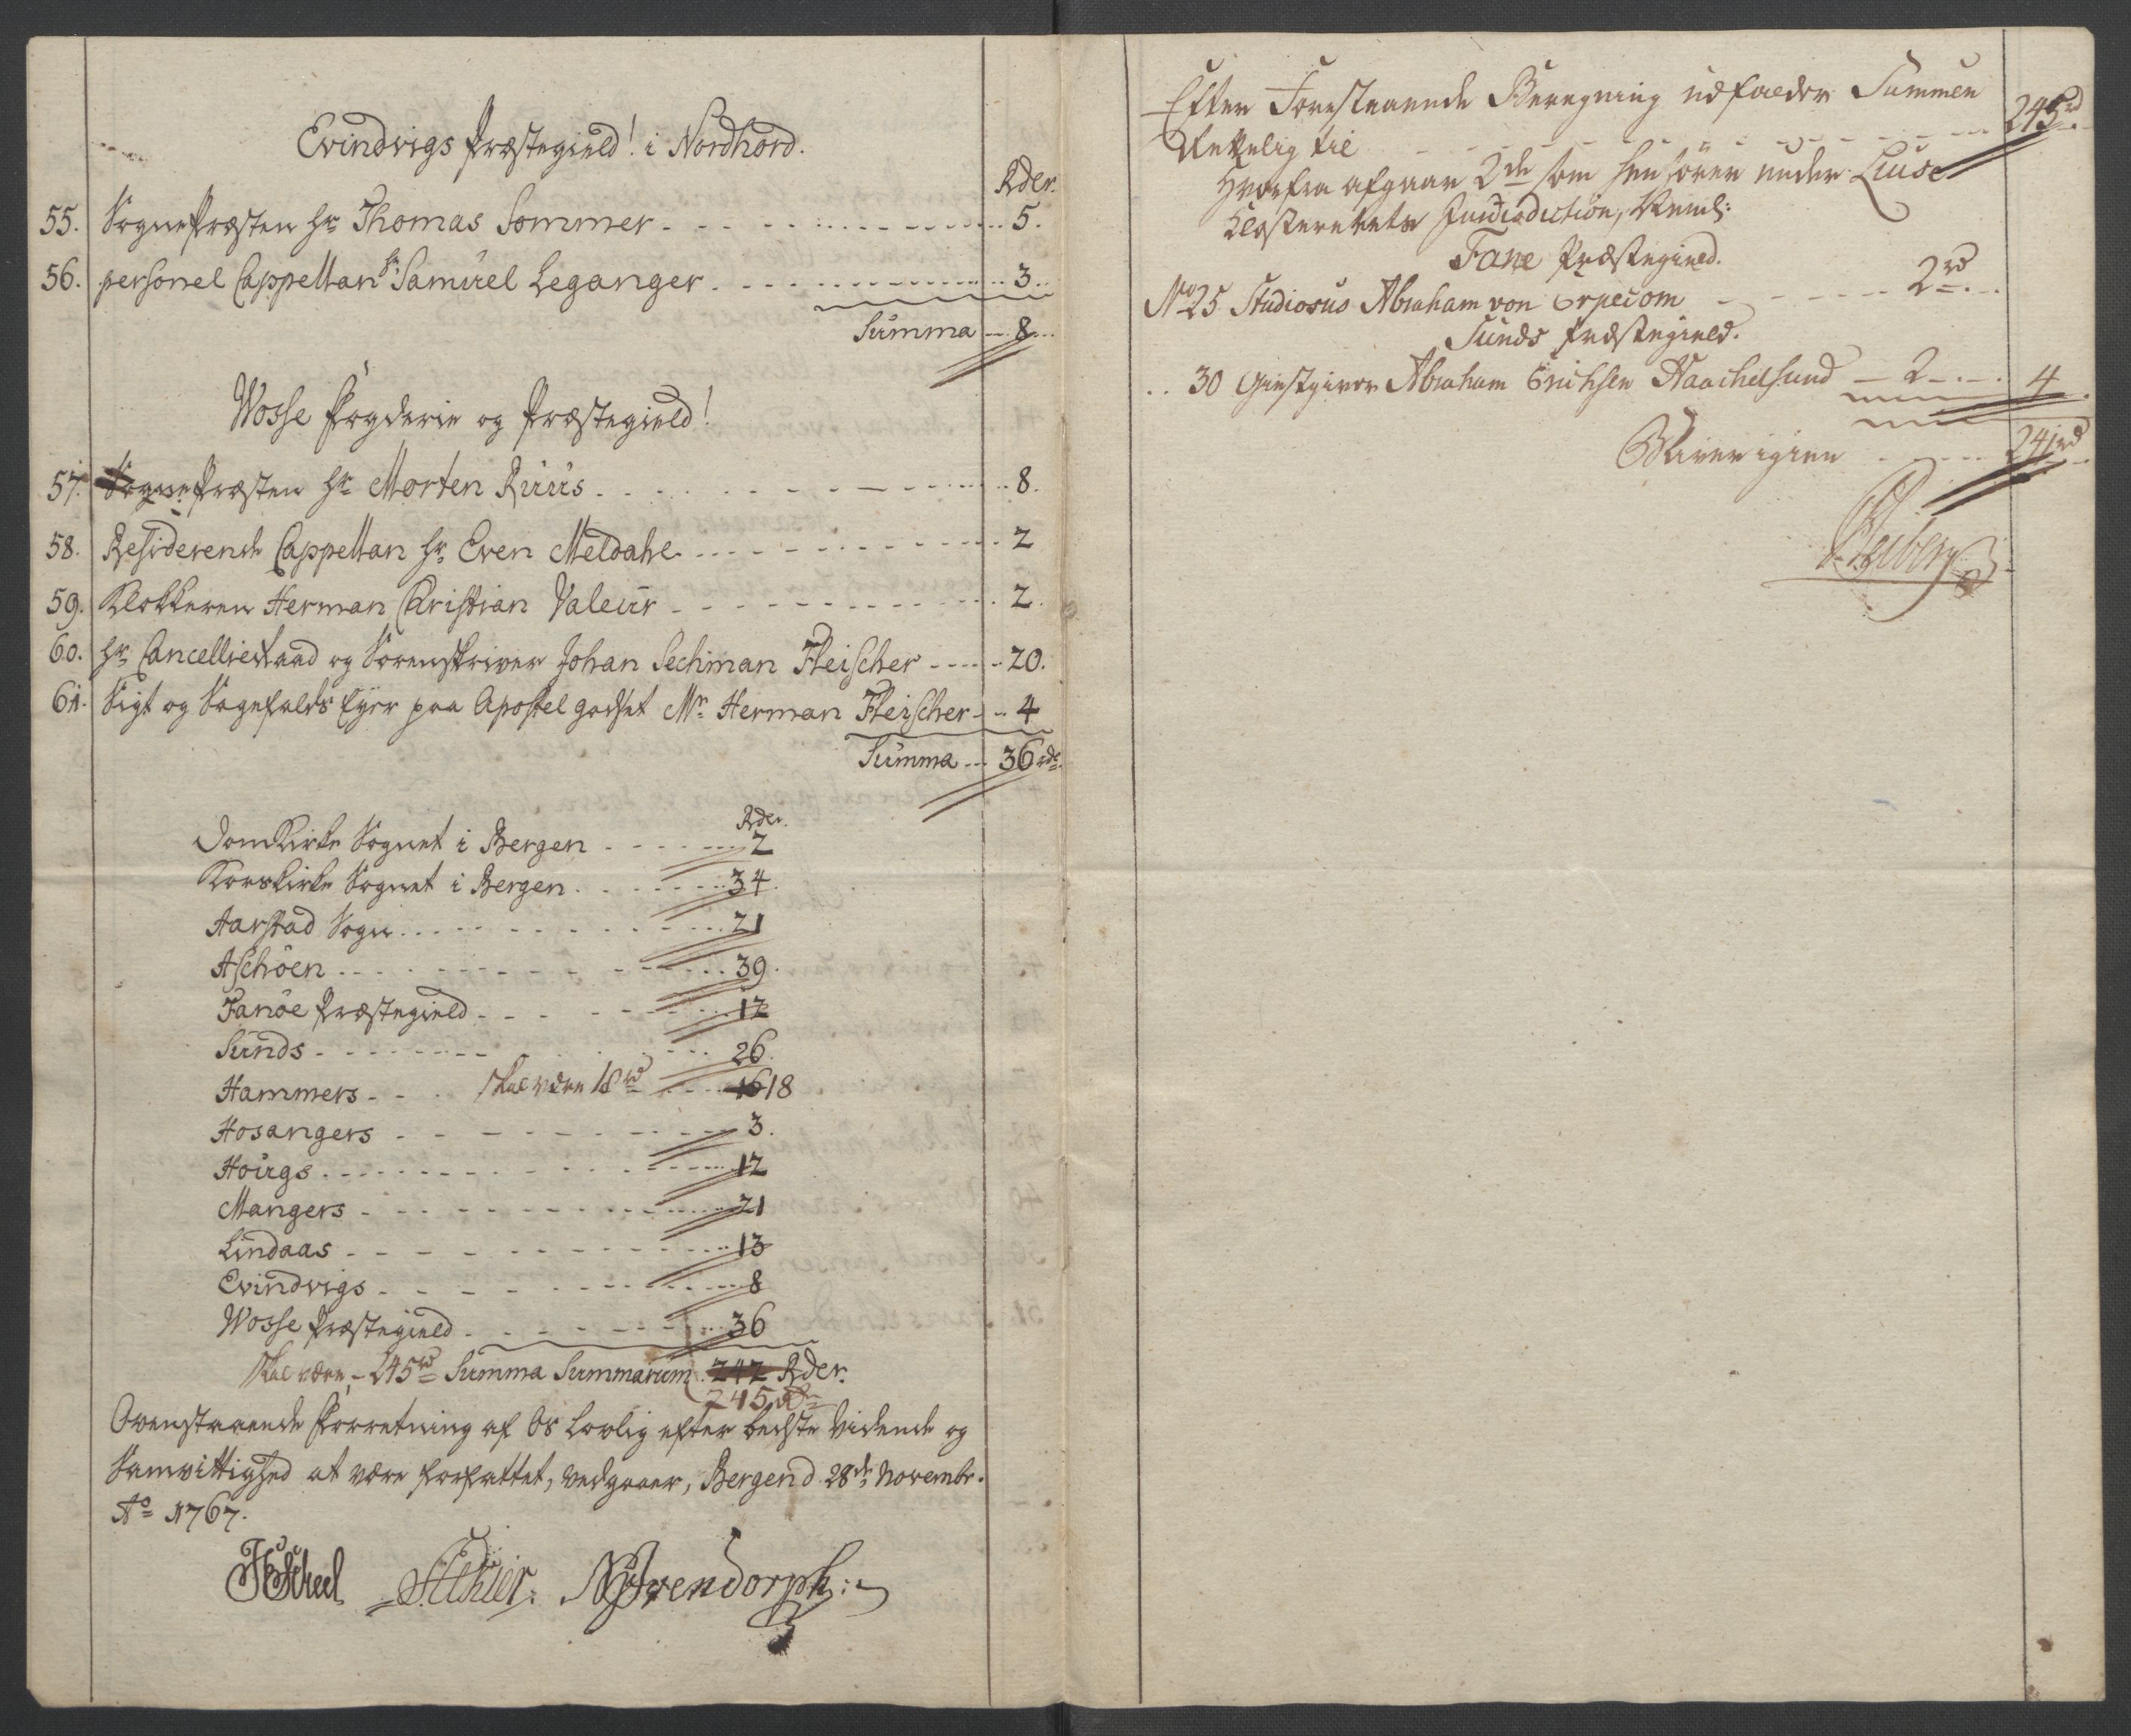 Evindvigs Præstegield! i Nordhord.
Rder.
55. Sognepræsten Hr Thomas Sommer - - - 5.
56. personel Cappellan Hr Samuel Leganger - - - 3.
Summa - 8
Wosse Fogderie og Præstegield!
57. Sognepræsten Hr Morten Ruus - - - 8.
58. Residerende Cappellan Hr Even Meldahl - - - 2
59. Klokkeren Herman Christian Valeur - - - 2.
60. Hr Cancellieraad og Sorenskriver Johan Sechman Fleischer - - - 20.
61. Sigt og Sagefalds Ejer paa Apostel godset Mr Herman Fleischer - - 4
Summa - 36 rdr
Rder.
Domkirke Sognet i Bergen - - - 2
Korskirke Sognet i Bergen - - - 34.
Aarstad Sogn - - - 21
Aschöen - - - 39.
Fanöe Præstegield - - - 12
Sunds - - - 26.
Hammers - - skal være 18 rd - - 16 18
Hosangers - - - 3.
Hougs - - - 12
Mangers - - - 21
Lindaas - - - 13
Evindvigs - - - 8
Wosse Præstegield - - - 36
skal være - 245 rd Summa Summarum 242 Rder.
245 Rdr
Ovenstaaende Forretning af Os Lovlig efter bedste Vidende og
Samvittighed at være forfattet, vedgaaer, Bergen d 28de Novembr.
Ao 1767.
Scheel Svendorph
Efter Forestaaende Beregning udfalder Summen
Rettelig til - - - 245 rd
Hvorfra afgaar 2de som henhörer under Liuse
Klosterets Jurisdiction, Neml:
Fane Præstegield.
No 25 Studiosus Abraham von Erpecom - - - 2 rd
Sunds Præstegield.
.. 30 Giestgiver Abraham Erichsen Raachelsund - 2 - . - . 4
Bliver igien - - - 241 rd